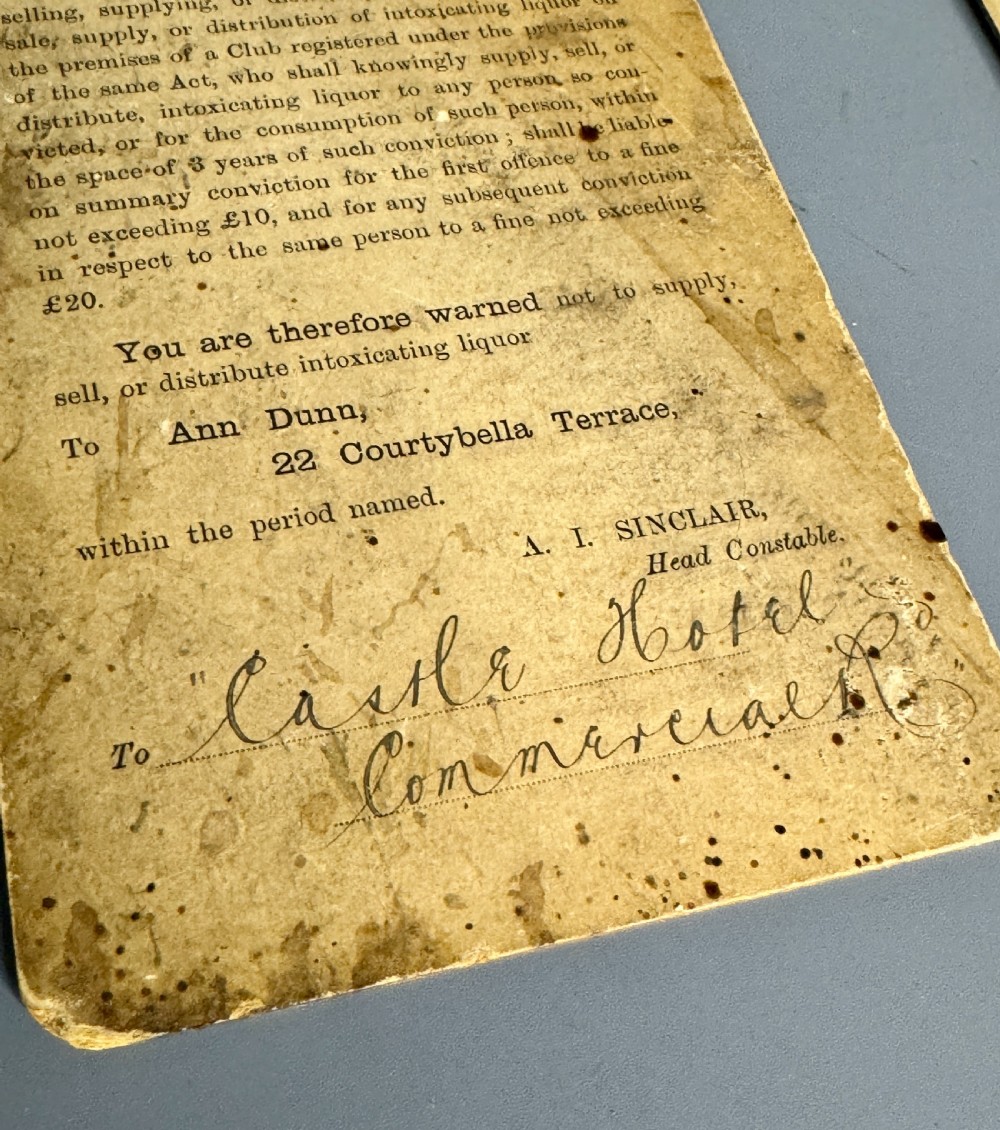 selling, supplying, or
sale, supply, or distribution of intoxicating liquor on
the premises of a Club registered under the provisions
of the same Act, who shall knowingly supply, sell, or
distribute, intoxicating liquor to any person so con-
victed, or for the consumption of such person, within
the space of 3 years of such conviction; shall be liable
on summary conviction for the first offence to a fine
not exceeding £10, and for any subsequent conviction
in respect to the same person to a fine not exceeding
£20.
You are therefore warned not to supply,
sell, or distribute intoxicating liquor
To Ann Dunn,
22 Courtybella Terrace,
within the period named.
A. I. SINCLAIR,
Head Constable.
To "Castle Hotel"
Commercial Rd"